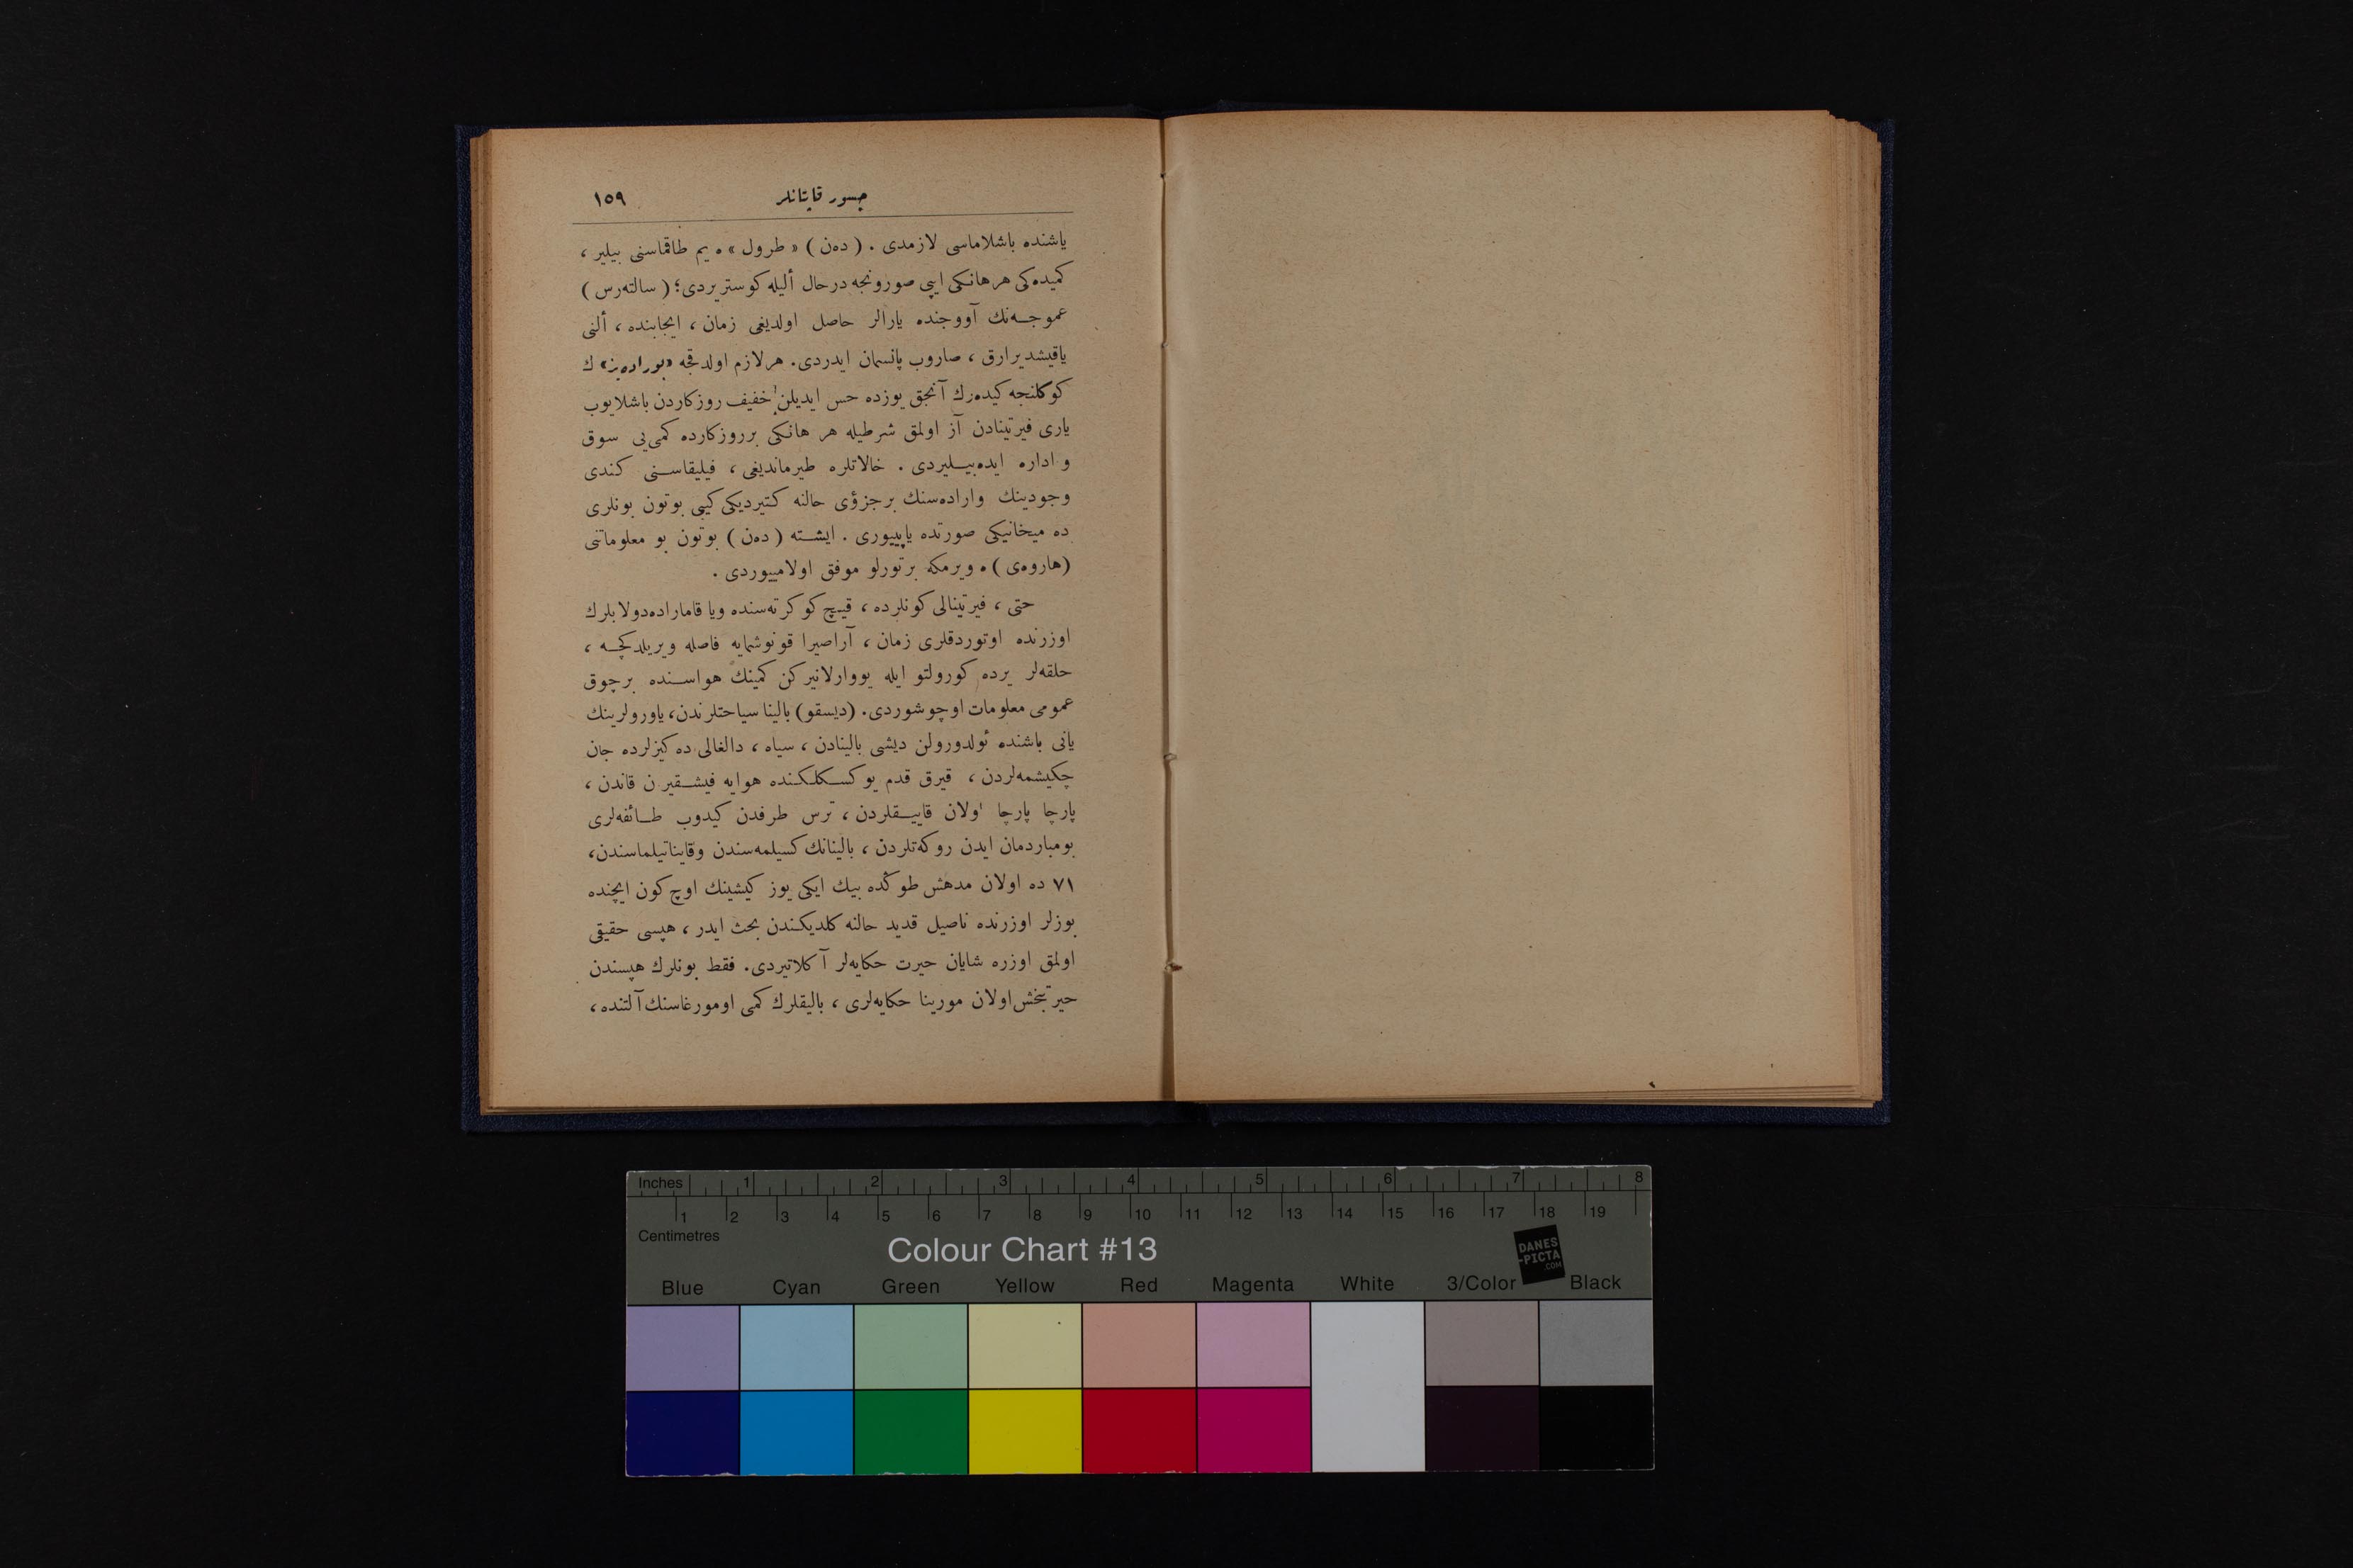 جسور قاپتانلر ١٥٩
ياشنده باشلاماسى لازمدى . ( دەن ) « طرول » ە يم طاقماسنى بيلير ،
كميده‌كى هر هانكى ايپى صورونجه درحال أليله كوستريردى؛ ( سالتەرس )
عموجه‌نك آووجنده يارالر حاصل اولديغى زمان ، ايجابنده ، ألنى
ياقيشديرارق ، صاروب پانسمان ايدردى. هرلازم اولدقجه «بوراده‌يز» ك
كوكلنجه كيده‌رك آنجق يوزده حس ايديلن خفيف روزكاردن باشلايوب
يارى فيرتينادن آز اولمق شرطيله هر هانكى برروزكارده كمى‌يى سوق
و اداره ايده‌بيليردى . خالاتلره طيرمانديغى ، فيليقاسنى كندى
وجودينك واراده‌سنك برجزؤى حالنه كتيرديكى كيبى بوتون بونلرى
ده ميخانيكى صورتده ياپييورى . ايشته ( دەن ) بوتون بو معلوماتنى
(هاروەى ) ە ويرمكه برتورلو موفق اولامييوردى .
حتى ، فيرتينالى كونلرده ، قيچ كوكرته‌سنده ويا قاماراده‌دولابلرك
اوزرنده اوتوردقلرى زمان ، آراصيرا قونوشمايه فاصله ويريلدكجه ،
حلقه‌لر يرده كورولتو ايله يووارلانيركن كمينك هواسنده برچوق
عمومى معلومات اوچوشوردى. (ديسقو) بالينا سياحتلرندن، ياورولرينك
يانى باشنده ئولدورولن ديشى بالينادن ، سياه ، دالغالى ده‌كيزلرده جان
چكيشمه‌لردن ، قيرق قدم يوكسكلكنده هوايه فيشقيرن قاندن ،
پارچا پارچا اولان قاييقلردن ، ترس طرفدن كيدوب طائفه‌لرى
بومباردمان ايدن روكه‌تلردن ، بالينانك كسيلمه‌سندن وقايناتيلماسندن،
٧١ ده اولان مدهش طوكده بيك ايكى يوز كيشينك اوچ كون ايچنده
بوزلر اوزرنده ناصيل قديد حالنه كلديكندن بحث ايدر ، هپسى حقيقى
اولمق اوزره شايان حيرت حكايه‌لر آكلاتيردى. فقط بونلرك هپسندن
حيرتبخش اولان مورينا حكايه‌لرى ، باليقلرك كمى اومورغاسنك آلتنده ،
Inches 1 2 3 4 5 6 7 8
1 2 3 4 5 6 7 8 9 10 11 12 13 14 15 16 17 18 19
Centimetres
Colour Chart #13
DANES
-PICTA
.COM
Blue Cyan Green Yellow Red Magenta White 3/Color Black